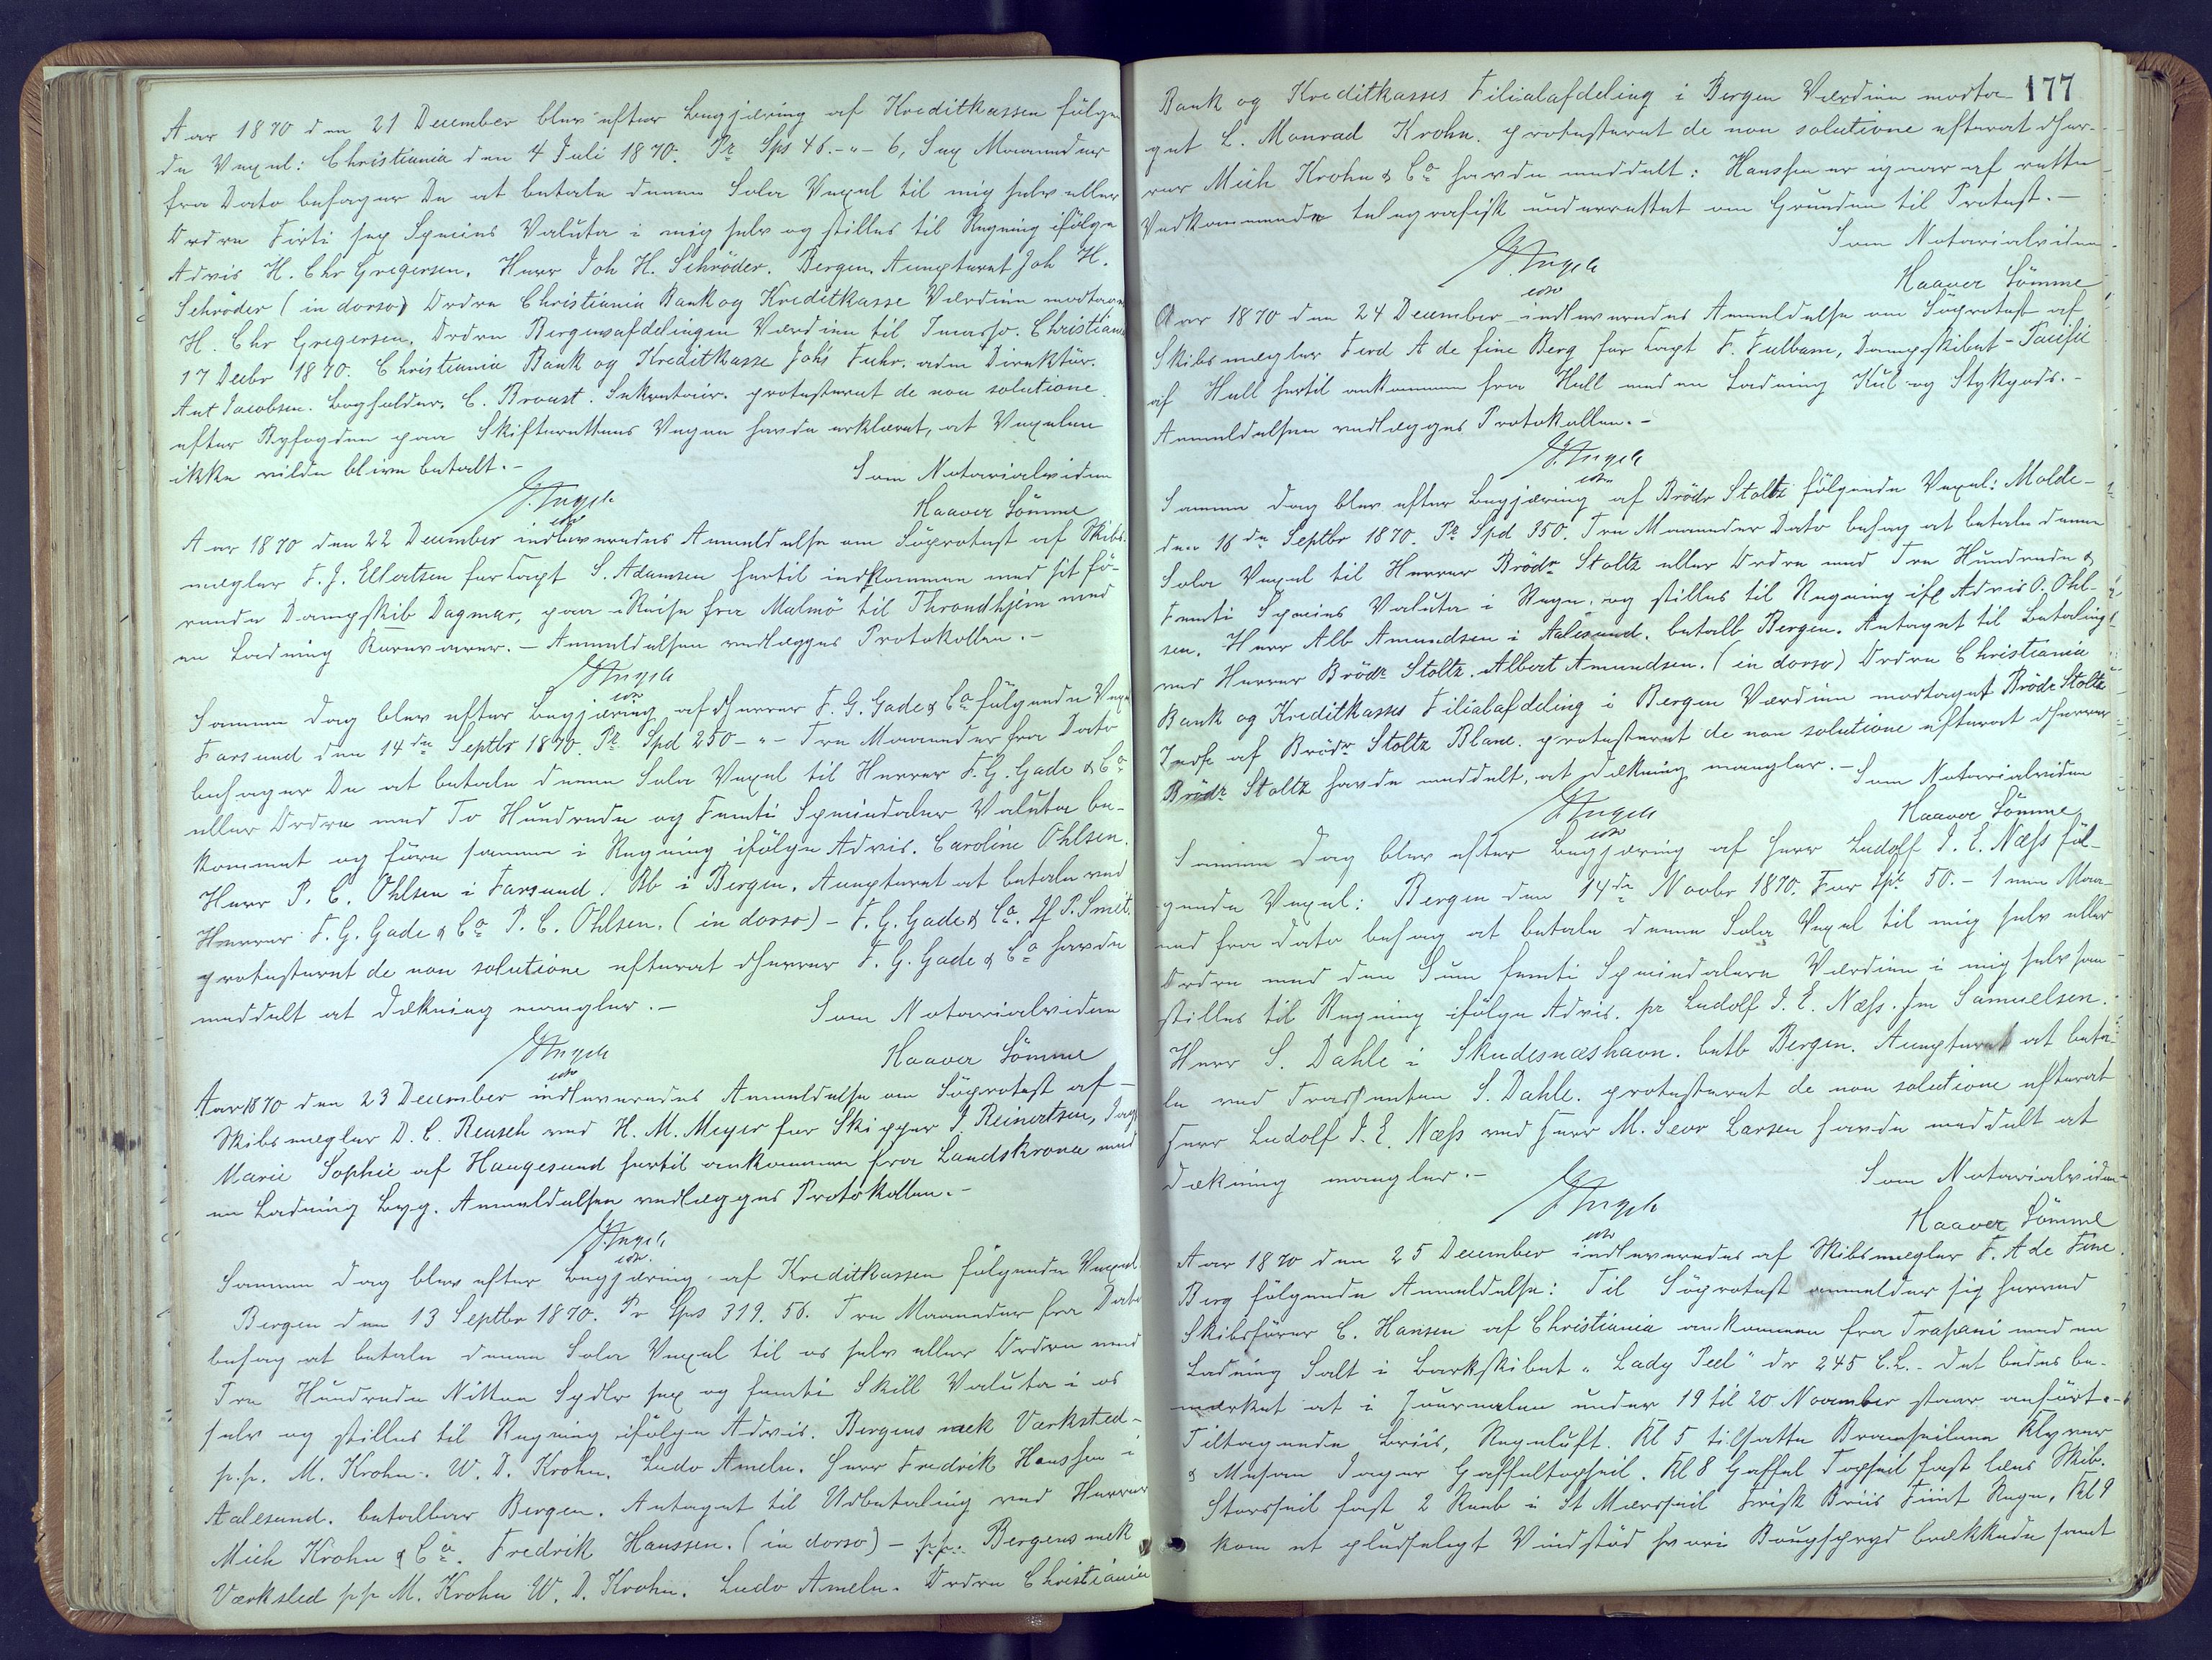 Aar 1870 den 21 December blev efter Begjæring af Kreditkassen følgen
de Vexel: Christiania den 4 Juli 1870. Pr Sps 46.-"- 6, Sex Maaneder
fra Dato behager De at betale denne Sola Vexel til mig selv eller
Ordre Firti sex Species Valuta i mig selv og stilles til Regning ifølge
Advis H. Chr Gregersen. Herr Joh H. Schröder. Bergen. Accepteret Joh H.
Schröder (in dorso) Ordre Christiania Bank og Kreditkasse Værdien modtaget
H. Chr Gregersen. Ordre Bergensafdelingen Værdien til Incasso. Christiania
17 Decbr 1870. Christiania Bank og Kreditkasse Johs Fuhr. adm Direktör.
Ant Jacobsen. Bogholder. C. Broust. Sekretair. protesteret de non solutione
efter Byfogden paa Skifterettens Vegne havde erklæret, at Vexelen
ikke vilde blive betalt.-
Som Notarialvidne
Haaver Sömme
Aar 1870 den 22 December indleveredes Anmeldelse om Söprotest af Skibs-
megler F. J. Ellertsen for Capt S. Adamsen hertil indkommen med sit fö-
rende Dampskib Dagmar, paa Reise fra Malmö til Throndhjem med
en Ladning Kornvarer.- Anmeldelsen vedlægges Protokollen.-
Samme Dag blev efter Begjæring af dHerrer F. G. Gade & Co følgende Vexel
Farsund den 14de Septbr 1870. Pr Spd 250-"- Tre Maaneder fra Dato
behager De at betale denne Sola Vexel til Herrer F. G. Gade & Co
eller Ordre med To Hundrede og Femti Speciedaler Valuta be-
kommet og före samme i Regning ifölge Advis. Caroline Ohlsen.
Herr P. C. Ohlsen i Farsund. Bb i Bergen. Accepteret at betale ved
Herrer F. G. Gade & Co P. C. Ohlsen. (in dorso) - F. G. Gade & Co. If P. Smit.
protesteret de non solutione efterat dHerrer F. G. Gade & Co havde
meddelt at Dækning mangler.-
Som Notarialvidne
Haaver Sömme
Aar 1870 den 23 December indleveredes Anmeldelse om Söprotest af -
Skibsmegler D. C. Reusch ved H. M. Meyer for Skipper J. Reinertsen, Jagt
Marie Sophie af Haugesund hertil ankommen fra Landskrona med
en Ladning Byg. Anmeldelsen vedlægges Protokollen.-
Samme Dag blev efter Begjæring af Kreditkassen følgende Vexel
Bergen den 13 Septbr 1870. Pr Sps 319. 56. Tre Maaneder fra Dato
behag at betale denne Sola Vexel til os selv eller Ordre med
Tre Hundrede Nitten Spdlr sex og femti Skill Valuta i os
selv og stilles til Regning ifölge Advis. Bergens mek Værksted-
p.p. M. Krohn. W. D. Krohn. Ludv Ameln. Herr Fredrik Hanssen i
Aalesund. betalbar Bergen. Antaget til Udbetaling ved Herrer
Mich Krohn & Co. Fredrik Hanssen. (in dorso) - p.p. Bergens mek
Værksted pp M. Krohn W. D. Krohn. Ludv Ameln. Ordre Christiania
177
Bank og Kreditkasses Filialafdeling i Bergen Værdien modta-
get L. Monrad Krohn. protesteret de non solutione efterat dHer-
rer Mich Krohn & Co havde meddelt: Hanssen er igaar af rette
Vedkommende telegrafisk underrettet om Grunden til Protest.-
Som Notarialvidne
Haaver Sömme
Aar 1870 den 24 December indleveredes Anmeldelse om Söprotest af
Skibsmegler Ferd A de fine Berg for Capt F. Fulbam, Dampskibet - Pacific
af Hull hertil ankommen fra Hull med en Ladning Kul og Stykgods.-
Anmeldelsen vedlægges Protokollen.-
Samme Dag blev efter Begjæring af Brödr Stoltz følgende Vexel: Molde-
den 16de Septbr 1870. Pr Spd 350. Tre Maaneder Dato behag at betale denne
Sola Vexel til Herrer Brödr Stoltz eller Ordre med Tre Hundrede &
Femti Species Valuta i Regn. og stilles til Regning ifl Advis O. Ohl-
sen. Herr Alb Amundsen i Aalesund. betalb Bergen. Antaget til Betaling
ved Herrer Brödr Stoltz. Albert Amundsen. (in dorso) Ordre Christiania
Bank og Kreditkasses Filialafdeling i Bergen Værdien modtaget Brödr Stoltz
Indk af Brödr Stoltz Blanc. protesteret de non solutione efterat dHerrer
Brödr Stoltz havde meddelt, at Dækning mangler.-
Som Notarialvidne
Haaver Sömme
Samme Dag blev efter Begjæring af Herr Ludolf J. E. Næss föl-
gende Vexel: Bergen den 14de Novbr 1870. For Spd 50.- 1 een Maa-
ned fra Dato behag at betale denne Sola Vexel til mig selv eller
Ordre med den Sum femti Speciedalere Værdien i mig selv som
stilles til Regning ifölge Advis. pr Ludolf J. E. Næss. Jm Samuelsen.
Herr S. Dahle i Skudesnæshavn. betb Bergen. Accepteret at beta-
le ved Trassenten S. Dahle. protesteret de non solutione efterat
Herr Ludolf J. E. Næss ved Herr M. Sevr Larsen havde meddelt at
Dækning mangler.-
Som Notarialvidne
Haaver Sömme
Aar 1870 den 25 December indleveredes af Skibsmegler F. A de Fine
Berg følgende Anmeldelse: Til Söprotest anmelder sig herved
Skibsförer C. Hansen af Christiania ankommen fra Trapani med en
Ladning Salt i Barkskibet "Lady Peel" dr 245 C.L. - Det bedes be-
mærket at i Journalen under 19 til 20 November staar anfört.-
Tiltagende Briis, Regnluft. Kl 5 tilsatte Bramseilene Klyver
& Mesan Jager Gaffeltopseil. Kl 8 Gaffel Topseil fast læns Skib.
Storseil fast 2 Reeb i St Mærsseil Frisk Briis Fiint Regn, Kl 9
kom et pludseligt Vindstöd hvori Bougspryd brækkede samt